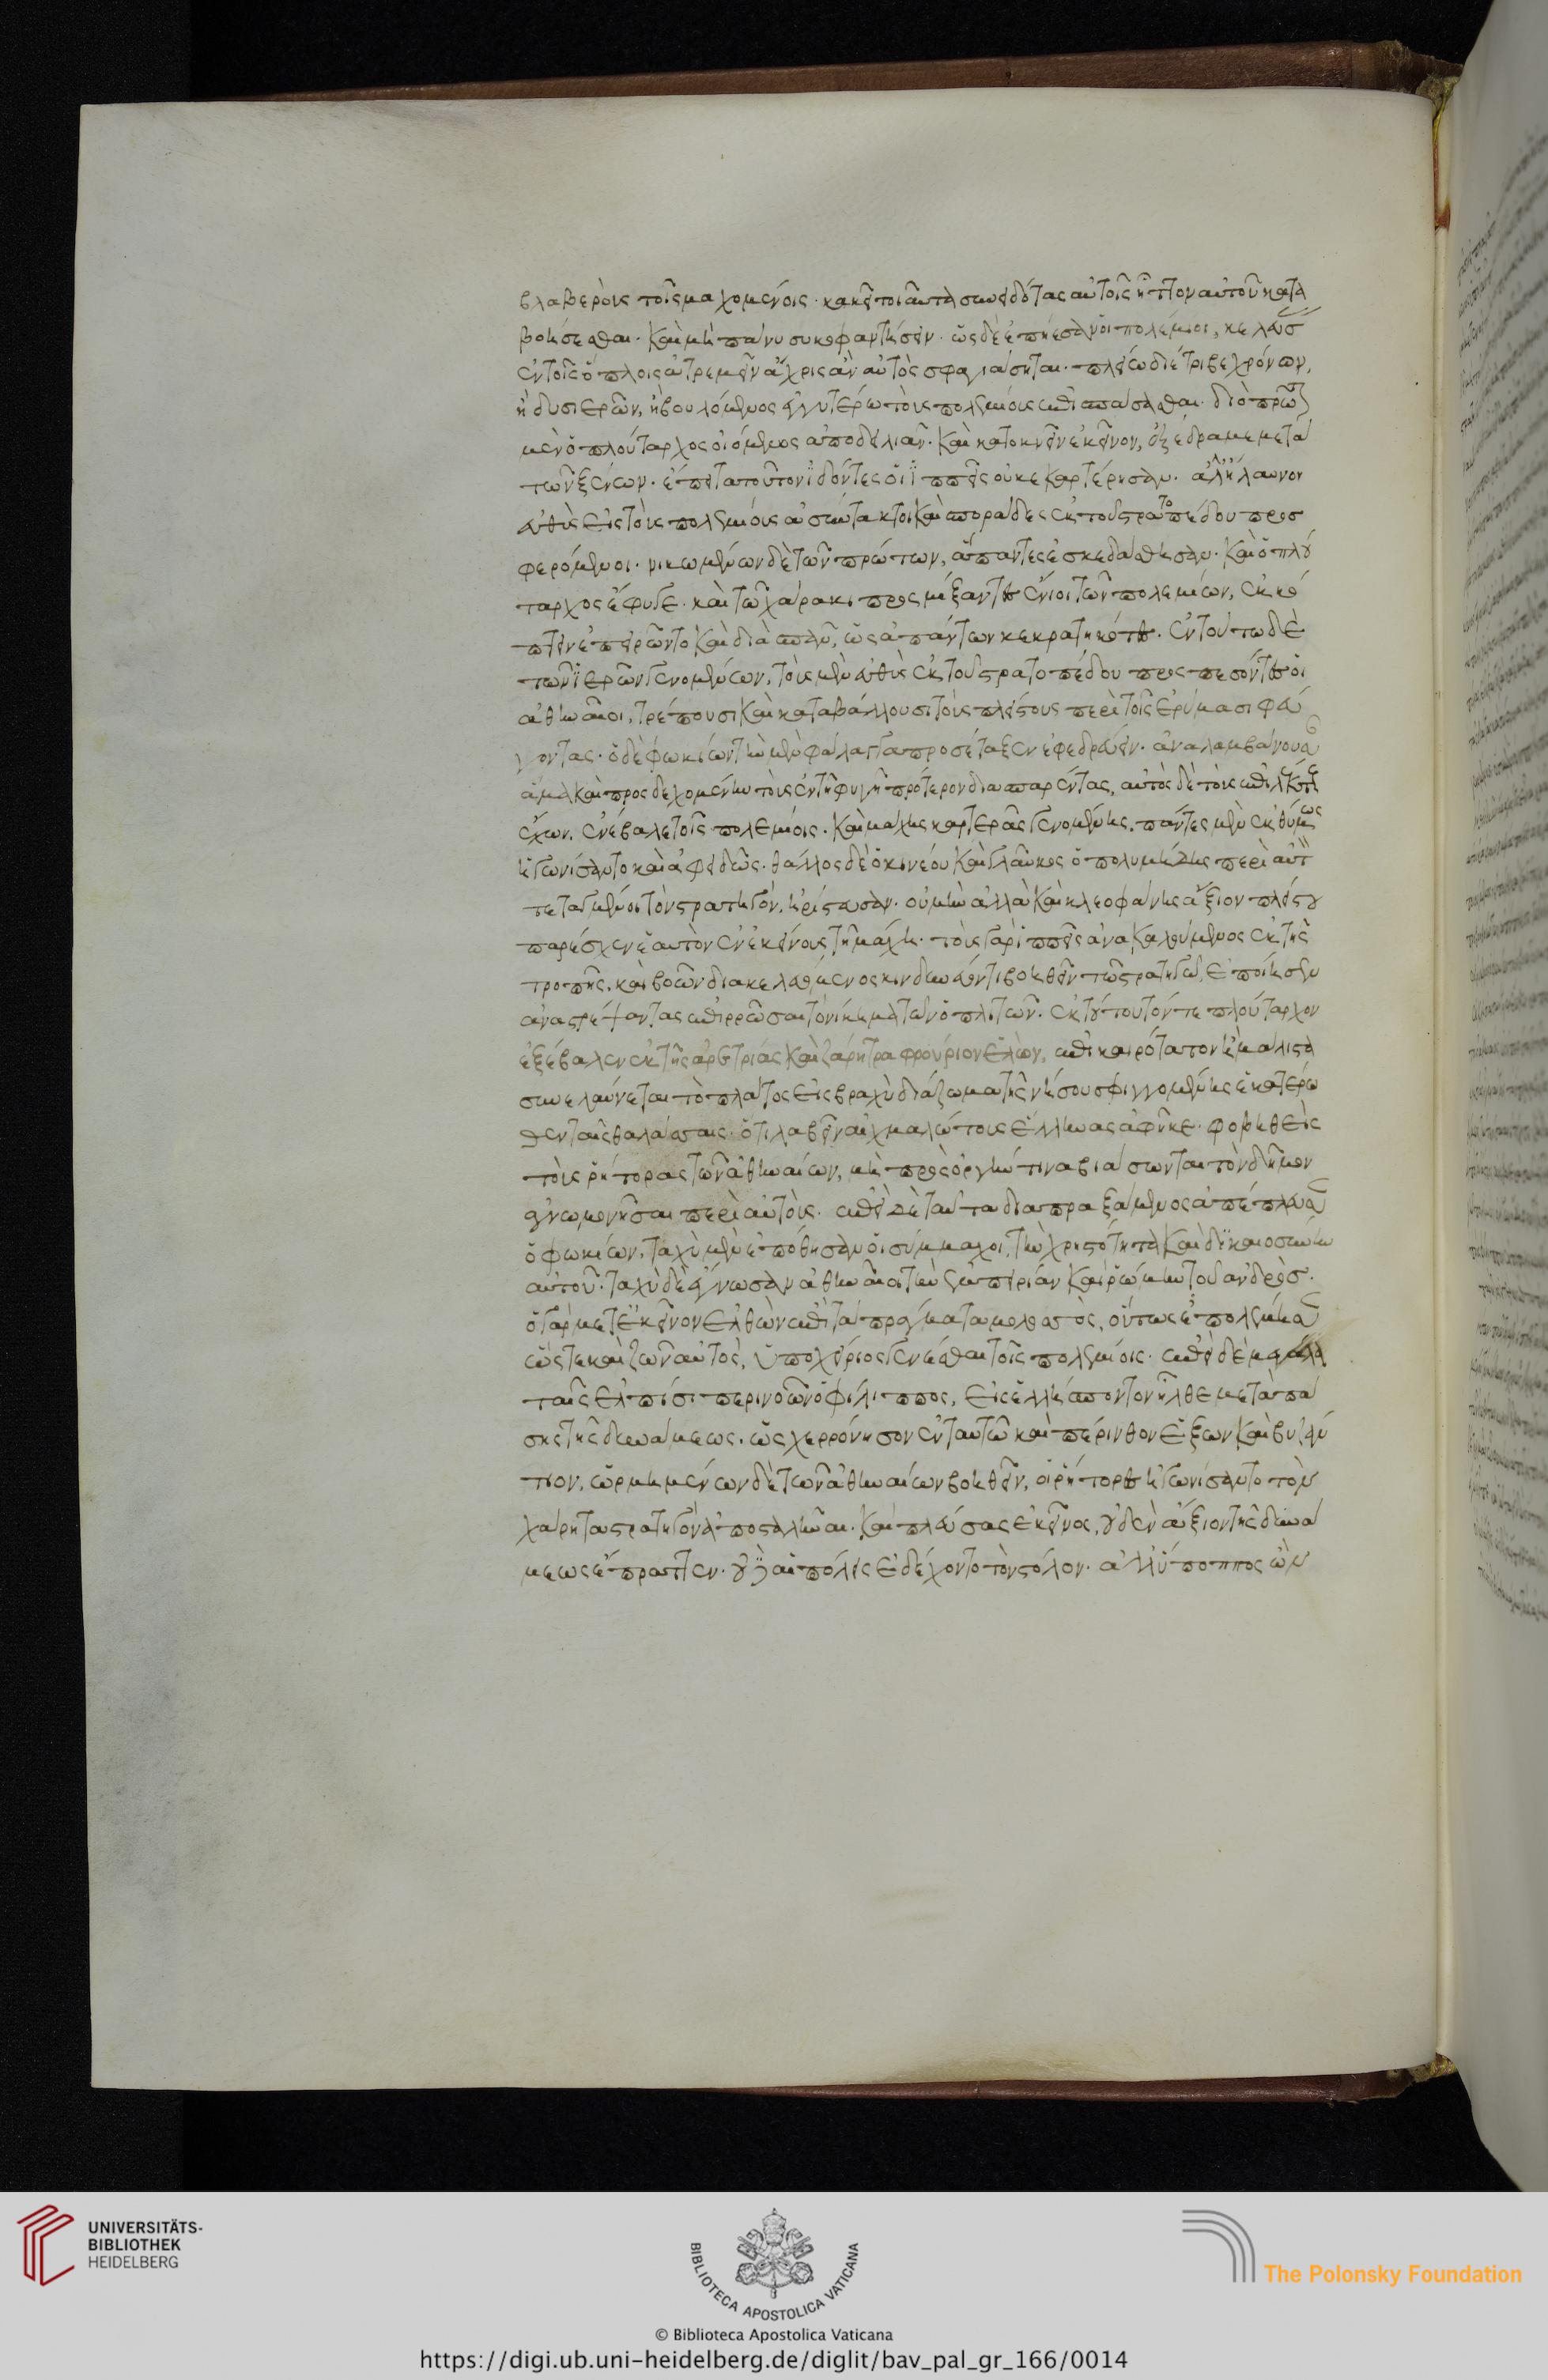 βλαβεροὺς τοῖς μαχομένοις. κακεῖ τοιαῦτα συνειδότας αὐτοῖς ἧττον αὐτοῦ κατα
βοήσεσθαι. καὶ μὴ πάνυ συκοφαντήσειν. ὡς δὲ ἐπήεσαν οἱ πολέμιοι, κελεύσας
ἐν τοῖς ὅπλοις ἀτρεμεῖν ἄχρις ἂν αὐτὸς σφαγιάσηται. πλείω διέτριβε χρόνον,
ἢ δυσιερῶν, ἢ βουλόμενος ἐγγυτέρω τοὺς πολεμίους ἐπισπάσασθαι. διὸ πρῶτον
μὲν ὁ πλούταρχος οἰόμενος ἀποδειλιᾶν. καὶ κατοκνεῖν ἐκεῖνον, ἐξέδραμε μετὰ
τῶν ξένων. ἔπειτα τοῦτον ἰδόντες οἱ ἱππεῖς οὐκ ἐκαρτέρησαν. ἀλλ' ἤλαυνον
εὐθὺς εἰς τοὺς πολεμίους ἀσύντακτοι καὶ σποράδες ἐκ τοῦ στρατοπέδου προσ
φερόμενοι. νικωμένων δὲ τῶν πρώτων, ἅπαντες ἐσκεδάσθησαν. καὶ ὁ πλού
ταρχος ἔφυγε. καὶ τῷ χάρακι προσμίξαντες ἔνιοι τῶν πολεμίων, ἐκκό
πτειν ἐπειρῶντο καὶ διασπᾶν, ὡς ἁπάντων κεκρατηκότες. ἐν τούτω δὲ
τῶν ἱερῶν γενομένων, τοὺς μὲν εὐθὺς ἐκ τοῦ στρατοπέδου προσπεσόντες οἱ
ἀθηναῖοι, τρέπουσι καὶ καταβάλλουσι τοὺς πλείστους περὶ τοῖς ἐρύμασι φεύ
γοντας. ὁ δὲ φωκίων τὴν μὲν φάλαγγα προσέταξεν ἐφεδρεύειν. ἀναλαμβάνουσαν
ἅμα καὶ προσδεχομένην τοὺς ἐν τῇ φυγῇ πρότερον διασπαρέντας, αὐτὸς δὲ τοὺς ἐπιλέκτους
ἔχων, ἐνέβαλε τοῖς πολεμίοις. καὶ μάχης καρτερᾶς γενομένης, πάντες μὲν ἐκθύμως
ἠγωνίσαντο καὶ ἀφειδῶς. θάλλος δὲ ὁ κινέου καὶ γλαῦκος ὁ πολυμήδης περὶ αὐτὸν
τεταγμένοι τὸν στρατηγόν, ἠρίστευσαν. οὐ μὴν ἀλλὰ καὶ κλεοφάνης ἄξιον πλείστου
παρέσχεν ἑαυτὸν ἐν ἐκείνους τῇ μάχῃ. τοὺς γὰρ ἱππεῖς ἀνακαλούμενος ἐκ τῆς
τροπῆς, καὶ βοῶν διακελευόμενος κινδυνεύοντι βοηθεῖν τῷ στρατηγῷ, ἐποίησεν
ἀναστρέψαντας ἐπιρρῶσαι τὸ νίκημα τῶν ὁπλιτῶν. ἐκ τούτου τόν τε πλούταρχον
ἐξέβαλεν ἐκ τῆς ἀρετριάς καὶ ζάρητρα φρούριον ἑλὼν, ἐπικαιρότατον ᾗ μάλιστα
συνελαύνεται τὸ πλάτος εἰς βραχὺ διάζωμα τῆς νήσου σφιγγομένης ἑκατέρω
θεν ταῖς θαλάσσαις. ὅτι λαβεῖν αἰχμαλώτους ἕλληνας ἀφῆκε. φοβηθεὶς
τοὺς ῥήτορας τῶν ἀθηναίων, μὴ πρὸς ὀργήν τινα βιάσωνται τὸν δῆμον
ἀγνωμονῆσαι περὶ αὐτούς. ἐπεὶ δὲ ταῦτα διαπραξάμενος ἀπέπλευσεν
ὁ φωκίων, ταχὺ μὲν ἐπόθησαν οἱ σύμμαχοι, τὴν χρηστότητα καὶ δικαιοσύνην
αὐτοῦ. ταχὺ δὲ ἔγνωσαν ἀθηναῖοι τὴν ἐμπειρίαν καὶ ῥώμην τοῦ ἀνδρὸς.
ὁ γὰρ μετ' ἐκεῖνον ἐλθὼν ἐπὶ τὰ πράγματα μολοσσὸς, οὕτως ἐπολέμησεν
ὥστε καὶ ζῶν αὐτὸς, ὑποχείριος γενέσθαι τοῖς πολεμίοις. ἐπεὶ δὲ μεγάλα
ταῖς ἐλπίσι περινοῶν ὁ φίλιππος, εἰς ἑλλήσποντον ἦλθε μετὰ πά
σης τῆς δυνάμεως. ὡς χερρόνησον ἐν ταυτῷ καὶ πέρινθον ἕξων καὶ βυζάν
τιον, ὡρμημένων δὲ τῶν ἀθηναίων βοηθεῖν, οἱ ῥήτορες ἠγωνίσαντο τὸν
χάρητα στρατηγὸν ἀποσταλῆναι. καὶ πλεύσας ἐκεῖνος, οὐδὲν ἄξιον τῆς δυνά
μεως ἔπραττεν. οὐδ' αἱ πόλεις ἐδέχοντο τὸν στόλον. ἀλλ' ὕποπτος ὢν
UNIVERSITÄTS-
BIBLIOTHEK
HEIDELBERG
BIBLIOTECA APOSTOLICA VATICANA
The Polonsky Foundation
© Biblioteca Apostolica Vaticana
https://digi.ub.uni-heidelberg.de/diglit/bav_pal_gr_166/0014